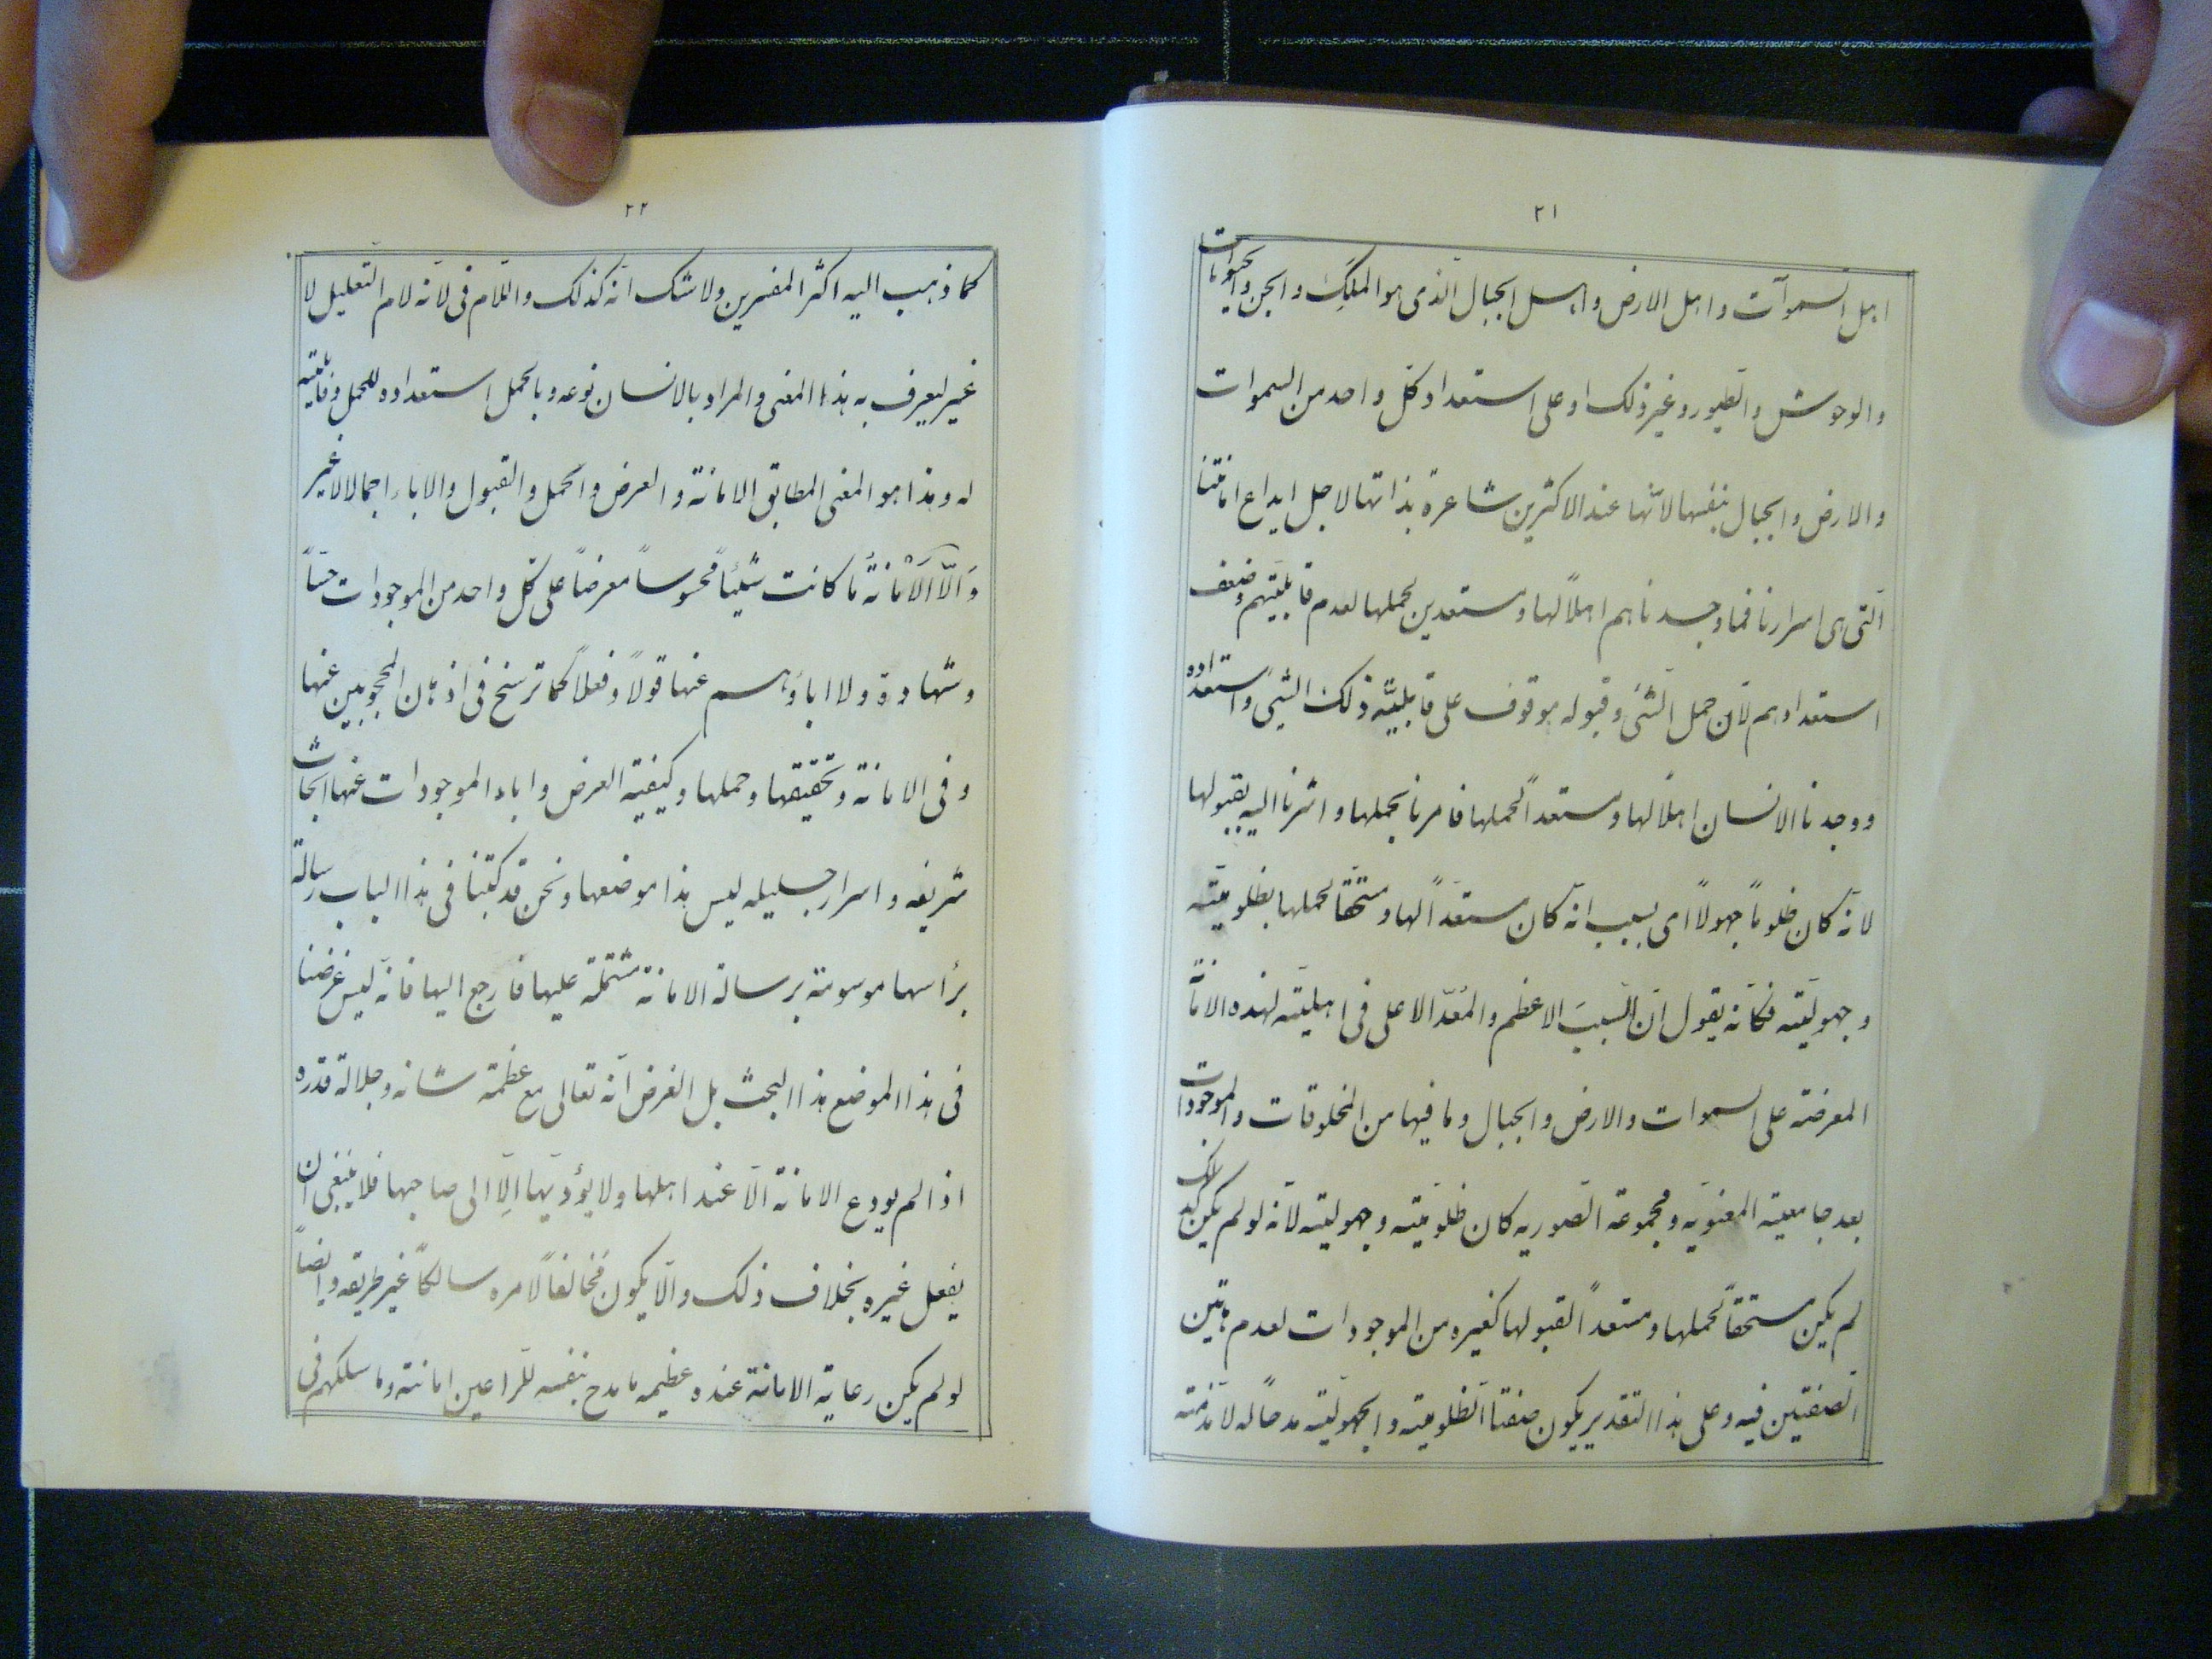 ٢١
اهل السموات و اهل الارض و اهل الجبال الذی هو الملک و الجن و الحیوانات
و الوحوش و الطیور و غیر ذلک او علی استعداد کل واحد من السموات
و الارض و الجبال بنفسها لانها عند الاکثرین شاعرة بذاتها لاجل ایداع امانتنا
التی هی اسرارنا فما وجدناهم اهلاً لها و مستعدین لحملها لعدم قابلیتهم و ضعف
استعدادهم لان حمل الشئ و قبوله موقوف علی قابلیّة ذلک الشئ و استعداده
و وجدنا الانسان اهلاً لها و مستعداً لحملها فامرنا بحملها و اشرنا الیه بقبولها
لانه کان ظلوماً جهولاً ای بسبب انه کان مستعداً لها و مستحقاً لحملها بظلومیّته
و جهولیّته فکانه یقول ان السبب الاعظم و المُعدّ الاعلی فی اهلیته لهذه الامانة
المعرضة علی السموات و الارض و الجبال و ما فیها من المخلوقات و الموجودات
بعد جامعیته المعنویه و مجموعة الصوریه کان ظلومیّته و جهولیته لانه لو لم یکن کذلک
لم یکن مستحقاً لحملها و مستعداً لقبولها کغیره من الموجودات لعدم هاتین
الصفتین فیه و علی هذا التقدیر یکون صفتا الظلومیته و الجهولیته مدحاً له لا مذمته
٢٢
کما ذهب الیه اکثر المفسرین و لا شک انه کذلک و اللام فی لانه لام التعلیل لا
غیر لیعرف به هذا المعنی و المراد بالانسان نوعه و بالحمل استعداده للحمل و قابلیته
له و هذا هو المعنی المطابق الامانة و العرض و الحمل و القبول و الاباء اجمالا لا غیر
وَ الّا الاَمانةُ ما کانت شیئاً محسوساً معرضاً علی کل واحد من الموجودات حسّاً
و شهادة و لا اباؤهم عنها قولاً و فعلاً کما ترسخ فی اذهان المحجوبین عنها
و فی الامانة و تحقیقها و حملها و کیفیة العرض و اباء الموجودات عنها ابحاث
شریفه و اسرار جلیله لیس هذا موضعها و نحن قد کتبنا فی هذا الباب رسالة
برأسها موسومة برسالة الامانة مشتملة علیها فارجع الیها فانه لیس غرضنا
فی هذا الموضع هذا البحث بل الغرض انه تعالی مع عظمة شانه و جلالة قدره
اذا لم یودع الامانة الّا عند اهلها و لا یؤدیها الّا الی صاحبها فلا ینبغی ان
یفعل غیره بخلاف ذلک و الّا یکون مخالفاً لامره سالکاً غیر طریقه و ایضاً
لو لم یکن رعایة الامانة عنده عظیمه ما مدح بنفسه للراعین امانته و ما سلکهم فی